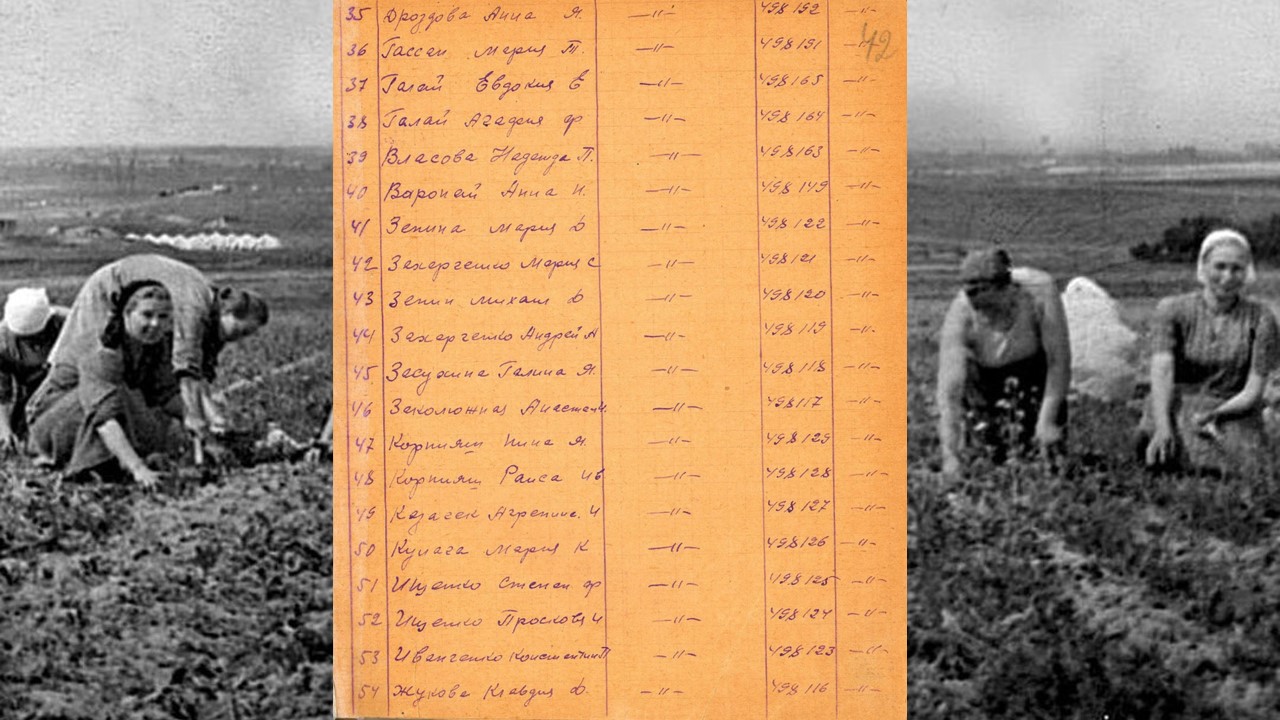 35 Дроздова Анна Я. —"— 498192 —"—
42
36 Гассан Мария Т. —"— 498191 —"—
37 Галай Евдокия Е —"— 498165 —"—
38 Галай Агафия Ф —"— 498164 —"—
39 Власова Надежда П. —"— 498163 —"—
40 Вароней Анна И. —"— 498149 —"—
41 Зенина Мария Д —"— 498122 —"—
42 Захарченко Мария С —"— 498121 —"—
43 Зенин Михаил Д —"— 498120 —"—
44 Захарченко Андрей А —"— 498119 —"—
45 Засухина Галина Я. —"— 498118 —"—
46 Заколюжная —"— 498117 —"—
47 Корнияш Нина Я. —"— 498129 —"—
48 Корнияш Раиса Ив —"— 498128 —"—
49 Казачек Агрепине. И —"— 498127 —"—
50 Кулага Мария К —"— 498126 —"—
51 Ищенко Степан Ф —"— 498125 —"—
52 Ищенко Просковя И —"— 498124 —"—
53 Иванченко Константин П —"— 498123 —"—
54 Жукова Клавдия Д. —"— 498116 —"—